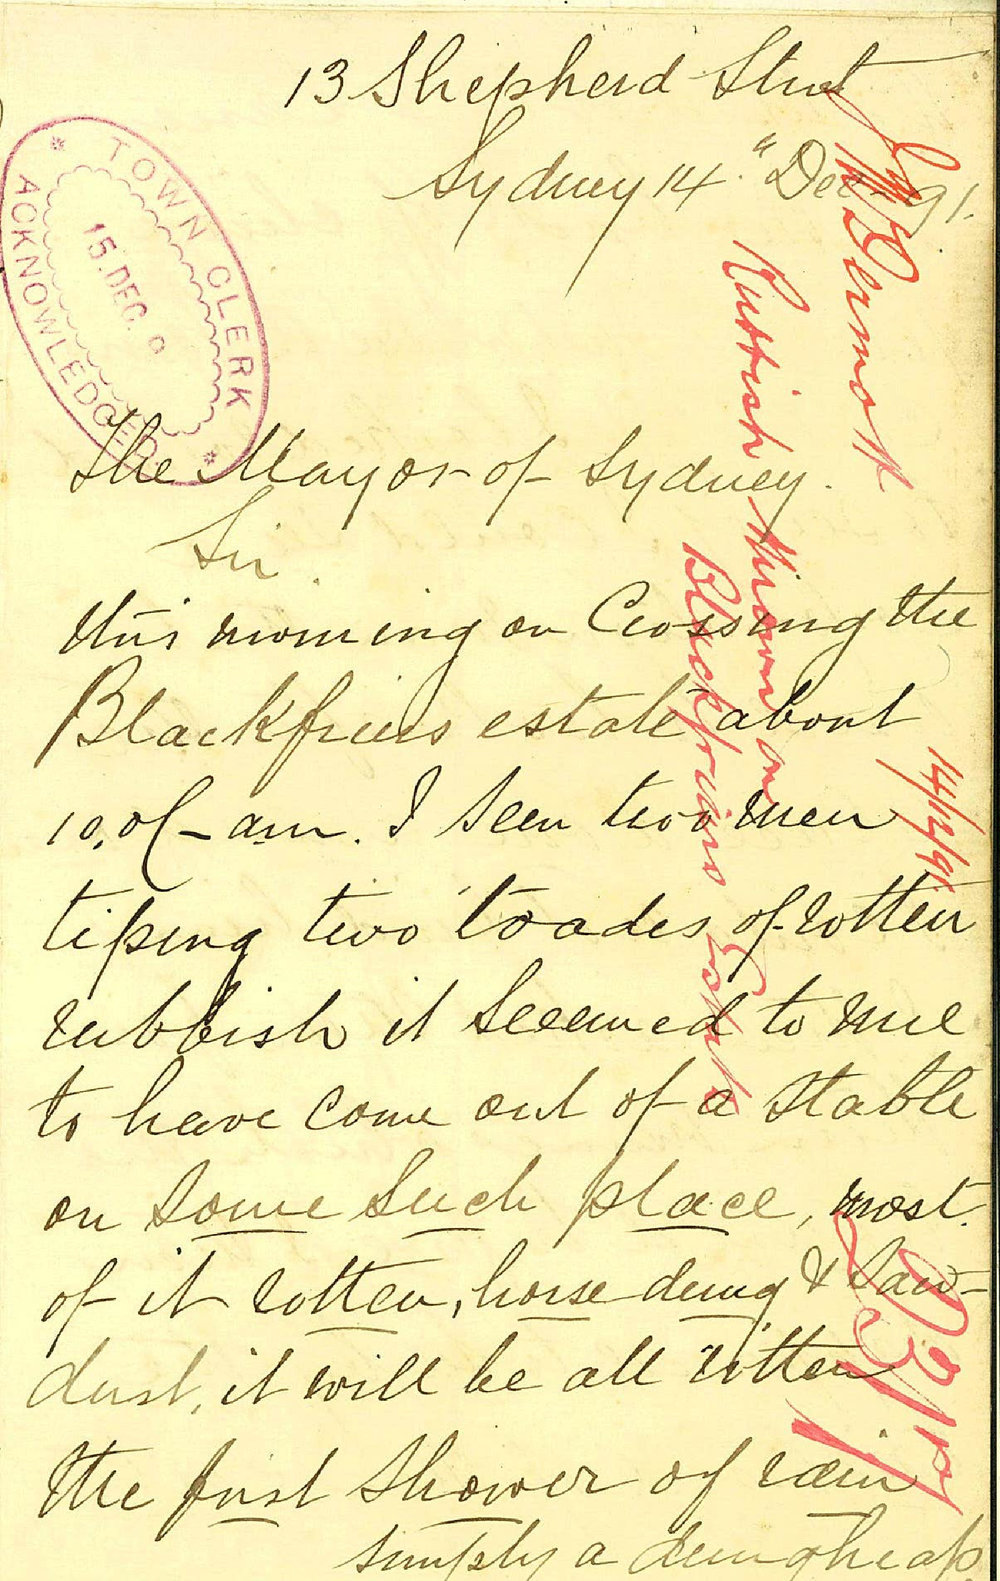 13 Shepherd Street
Sydney 14th Dec 91.
TOWN CLERK
15. DEC. 9
ACKNOWLEDGED
The Mayor of Sydney.
Sir.
this morning on Crossing the
Blackfriers estate about
10, of am. I Seen two men
tiping two loades of rotten
rubbish it Seeamed to mee
to have Come out of a Stable
or Some Such place, most.
of it rotten, horse dung & Saw-
dust, it will be all rotten
the first Shower of rain
simply a dungheap.
McDermot
Rubbish thrown on
Blackfriars Estate
14/12/91